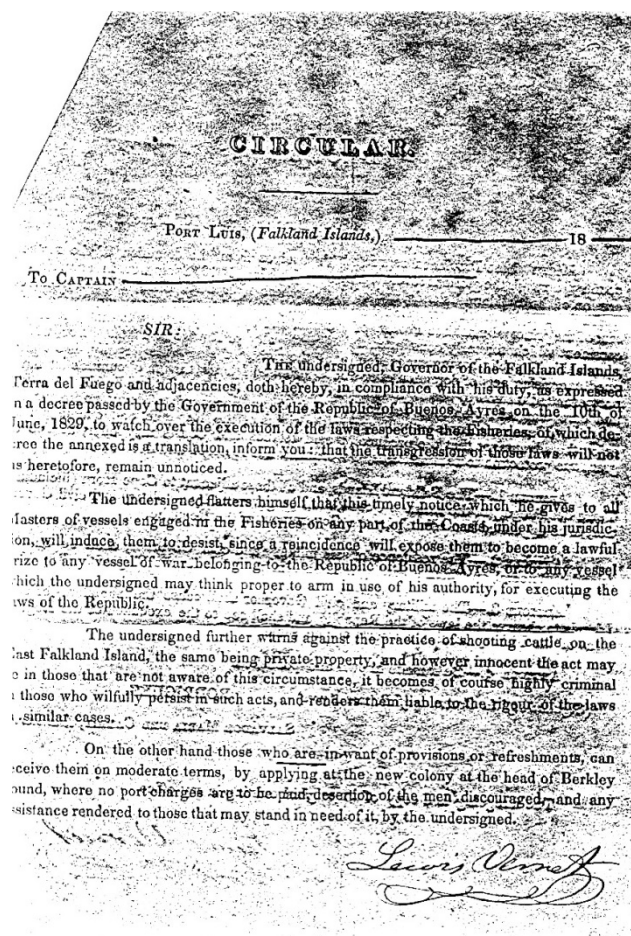 CIRCULAR.
PORT LUIS, (Falkland Islands,) 18
TO CAPTAIN
SIR:
THE undersigned, Governor of the Falkland Islands,
Terra del Fuego and adjacencies, doth hereby, in compliance with his duty, as expressed
n a decree passed by the Government of the Republic of Buenos Ayres on the 10th of
June, 1829, to watch over the execution of the laws respecting the Fisheries, of which de-
cree the annexed is a translation, inform you: that the transgression of those laws will not
as heretofore, remain unnoticed.
The undersigned flatters himself that this timely notice which he gives to all
Masters of vessels engaged in the Fisheries on any part of the Coasts, under his jurisdic-
ion, will induce them to desist, since a reincidence will expose them to become a lawful
rize to any vessel of war belonging to the Republic of Buenos Ayres, or to any vessel
which the undersigned may think proper to arm in use of his authority, for executing the
aws of the Republic.
The undersigned further warns against the practice of shooting cattle on the
East Falkland Island, the same being private property, and however innocent the act may
e in those that are not aware of this circumstance, it becomes of course highly criminal
those who wilfully persist in such acts, and renders them liable to the rigour of the laws
similar cases.
On the other hand those who are in want of provisions or refreshments, can
eceive them on moderate terms, by applying at the new colony at the head of Berkley
ound, where no port charges are to be paid, desertion of the men discouraged, and any
ssistance rendered to those that may stand in need of it, by the undersigned.
Lewis Vernet